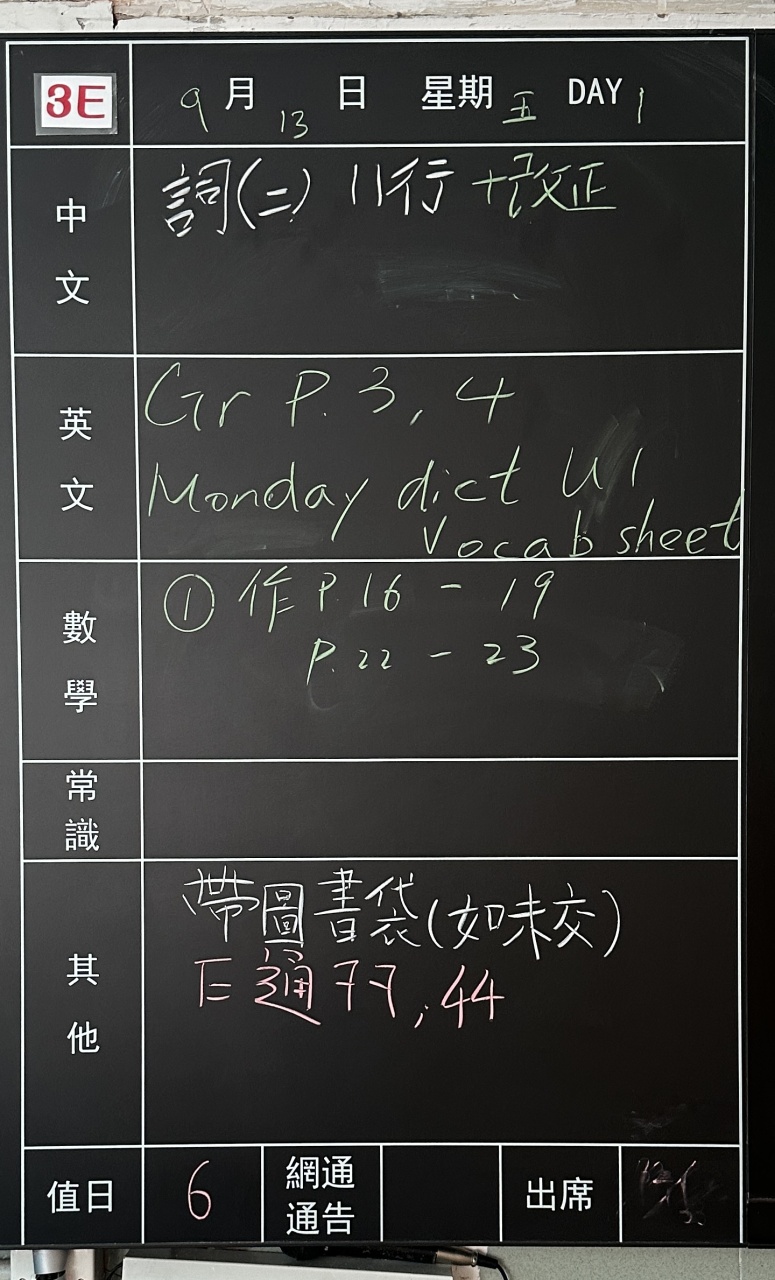 3E 9月13日 星期五 DAY 1
中文 詞(二) 11行+改正
英文 Gr P. 3, 4
Monday dict U1
Vocab sheet
數學 ① 作 P.16 - 19
P.22 - 23
常識
其他 帶圖書袋(如未交)
E通 77, 44
值日 6 網通通告 出席